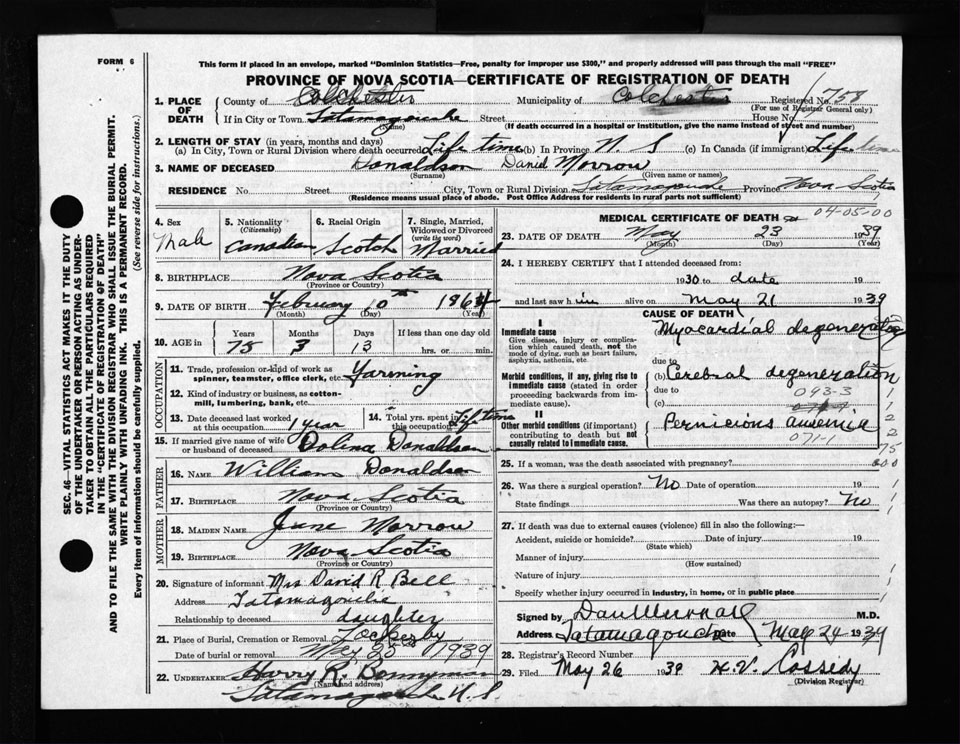 FORM 6
This form if placed in an envelope, marked "Dominion Statistics—Free, penalty for improper use $300," and properly addressed will pass through the mail "FREE"
PROVINCE OF NOVA SCOTIA—CERTIFICATE OF REGISTRATION OF DEATH
1. PLACE OF DEATH County of Colchester Municipality of Colchester Registered No. 758
(For use of Registrar General only)
If in City or Town Tatamagouche Street House No.
(Name) (If death occurred in a hospital or institution, give the name instead of street and number)
2. LENGTH OF STAY (in years, months and days)
(a) In City, Town or Rural Division where death occurred Life time (b) In Province N. S (c) In Canada (if immigrant) Life time
3. NAME OF DECEASED Donaldson David Morrow
(Surname) (Given name or names)
RESIDENCE No. Street City, Town or Rural Division Tatamagouche Province Nova Scotia
(Residence means usual place of abode. Post Office Address for residents in rural parts not sufficient)
SEC. 46—VITAL STATISTICS ACT MAKES IT THE DUTY
OF THE UNDERTAKER OR PERSON ACTING AS UNDER-
TAKER TO OBTAIN ALL THE PARTICULARS REQUIRED
IN THE "CERTIFICATE OF REGISTRATION OF DEATH"
AND TO FILE THE SAME WITH THE DIVISION REGISTRAR WHO SHALL ISSUE THE BURIAL PERMIT.
WRITE PLAINLY WITH UNFADING INK. THIS IS A PERMANENT RECORD.
Every item of information should be carefully supplied. (See reverse side for instructions.)
4. Sex Male
5. Nationality (Citizenship) Canadian
6. Racial Origin Scotch
7. Single, Married, Widowed or Divorced (write the word) Married
8. BIRTHPLACE Nova Scotia
(Province or Country)
9. DATE OF BIRTH February 10th 1864
(Month) (Day) (Year)
10. AGE in Years 75 Months 3 Days 13 If less than one day old hrs. or min.
OCCUPATION
11. Trade, profession or kind of work as spinner, teamster, office clerk, etc. Farming
12. Kind of industry or business, as cotton-mill, lumbering, bank, etc.
13. Date deceased last worked at this occupation 1 year
14. Total yrs. spent in this occupation Life time
15. If married give name of wife or husband of deceased Dolina Donaldson
FATHER
16. NAME William Donaldson
17. BIRTHPLACE Nova Scotia
(Province or Country)
MOTHER
18. MAIDEN NAME Jane Morrow
19. BIRTHPLACE Nova Scotia
(Province or Country)
20. Signature of informant Mrs David R Bell
Address Tatamagouche
Relationship to deceased daughter
21. Place of Burial, Cremation or Removal Lockerby
Date of burial or removal May 25th 1939
22. UNDERTAKER Harry R. Bonnyman
(Name and address)
Tatamagouche N. S.
MEDICAL CERTIFICATE OF DEATH 04-05-00
23. DATE OF DEATH May 23 1939
(Month) (Day) (Year)
24. I HEREBY CERTIFY that I attended deceased from:
1930 to date 19
and last saw him alive on May 21 1939
CAUSE OF DEATH
I
Immediate cause
Give disease, injury or complication which caused death, not the mode of dying, such as heart failure, asphyxia, asthenia, etc.
(a) Myocardial degeneration
due to
Morbid conditions, if any, giving rise to immediate cause (stated in order proceeding backwards from immediate cause).
(b) Cerebral degeneration
due to 093-3
(c)
II
Other morbid conditions (if important) contributing to death but not causally related to immediate cause.
Pernicious anaemia
071-1
25. If a woman, was the death associated with pregnancy?
26. Was there a surgical operation? No Date of operation 19
State findings Was there an autopsy? No
27. If death was due to external causes (violence) fill in also the following:—
Accident, suicide or homicide? Date of injury 19
(State which)
Manner of injury
(How sustained)
Nature of injury
Specify whether injury occurred in industry, in home, or in public place
Signed by M.D.
Address Tatamagouche Date May 24 1939
28. Registrar's Record Number
29. Filed May 26 1939 H. V. Cassidy
(Division Registrar)